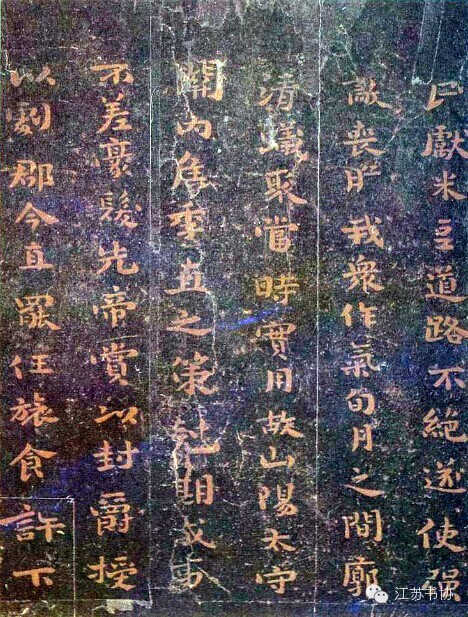 民獻米豆道路不絕遂使强
敵喪膽我衆作氣旬月之間廓
清蟻聚當時實用故山陽太守
關內侯季直之策尅期成事
不差豪髮先帝賞以封爵授
以劇郡今直罷任旅食許下
江苏书协